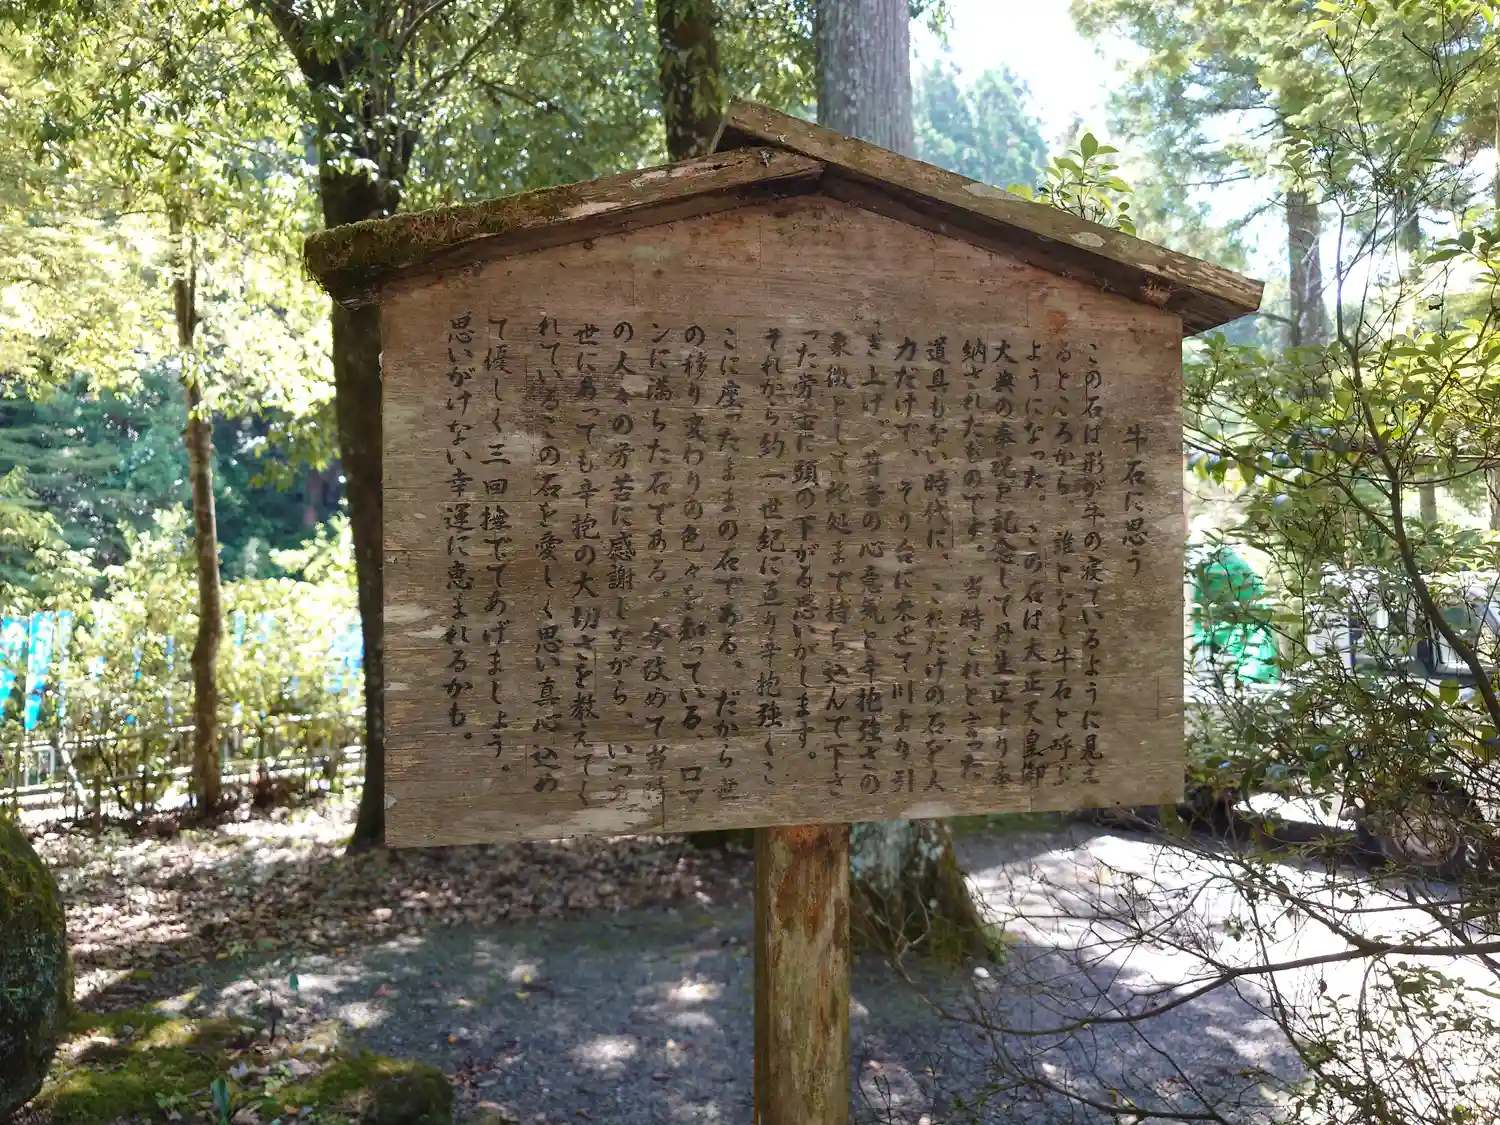 牛石に思う
この石は形が牛の寝ているように見え
るところから、誰となく牛石と呼ぶ
ようになった。この石は大正天皇御
大典の奉祝を記念して丹生区より奉
納されたものです。当時これと言った
道具もない時代に、これだけの石を人
力だけで、そり台に乗せて川より引
き上げ。昔者の心意気と辛抱強さの
象徴として此処まで持ち込んで下さ
った労苦に頭の下がる思いがします。
それから約一世紀に亘り辛抱強くこ
こに座ったままの石である、だから世
の移り変わりの色々を知っている、ロマ
ンに満ちた石である。今改めて当時
の人々の労苦に感謝しながら、いつの
世に為っても辛抱の大切さを教えてく
れているこの石を愛しく思い真心込め
て優しく三回撫でてあげましょう。
思いがけない幸運に恵まれるかも。